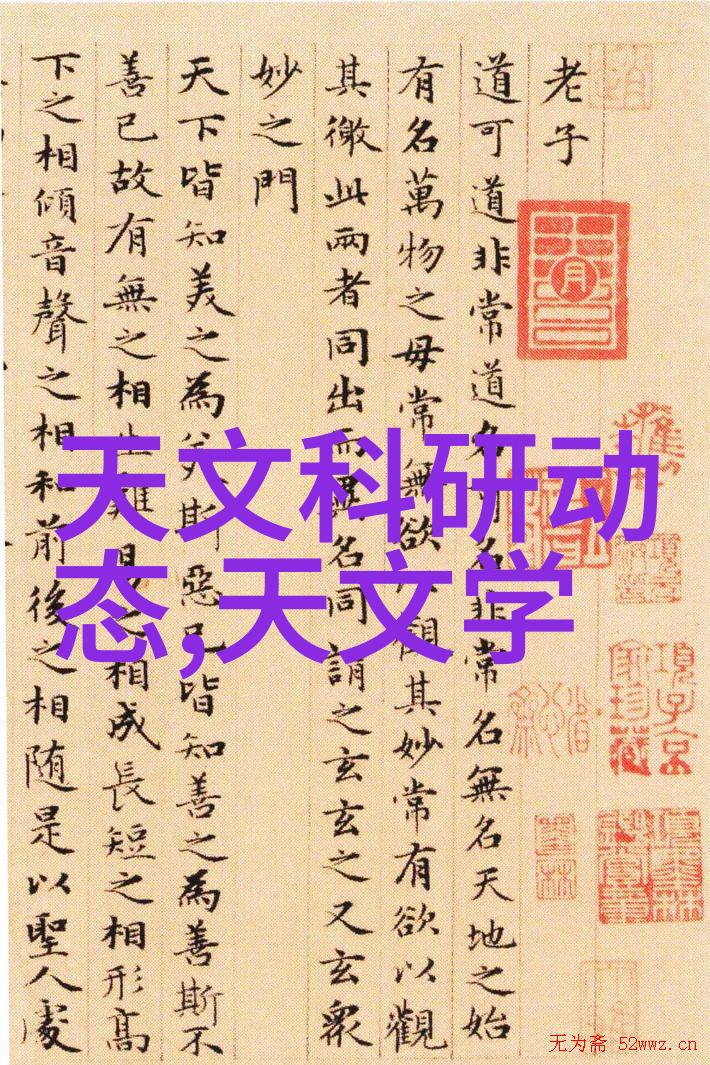 天文科研动
态,天文学
老子
道可道非常道名可名非常名無名天地之始
有名萬物之母常無欲以觀其妙常有欲以觀
其徼此兩者同出而異名同謂之玄玄之又玄衆
妙之門
天下皆知美之為美斯惡已皆知善之為善斯不
善已故有無之相生難易之相成長短之相形高
下之相傾音聲之相和前後之相随是以聖人處
項子京
家珍藏
无为斋 52wwz.cn